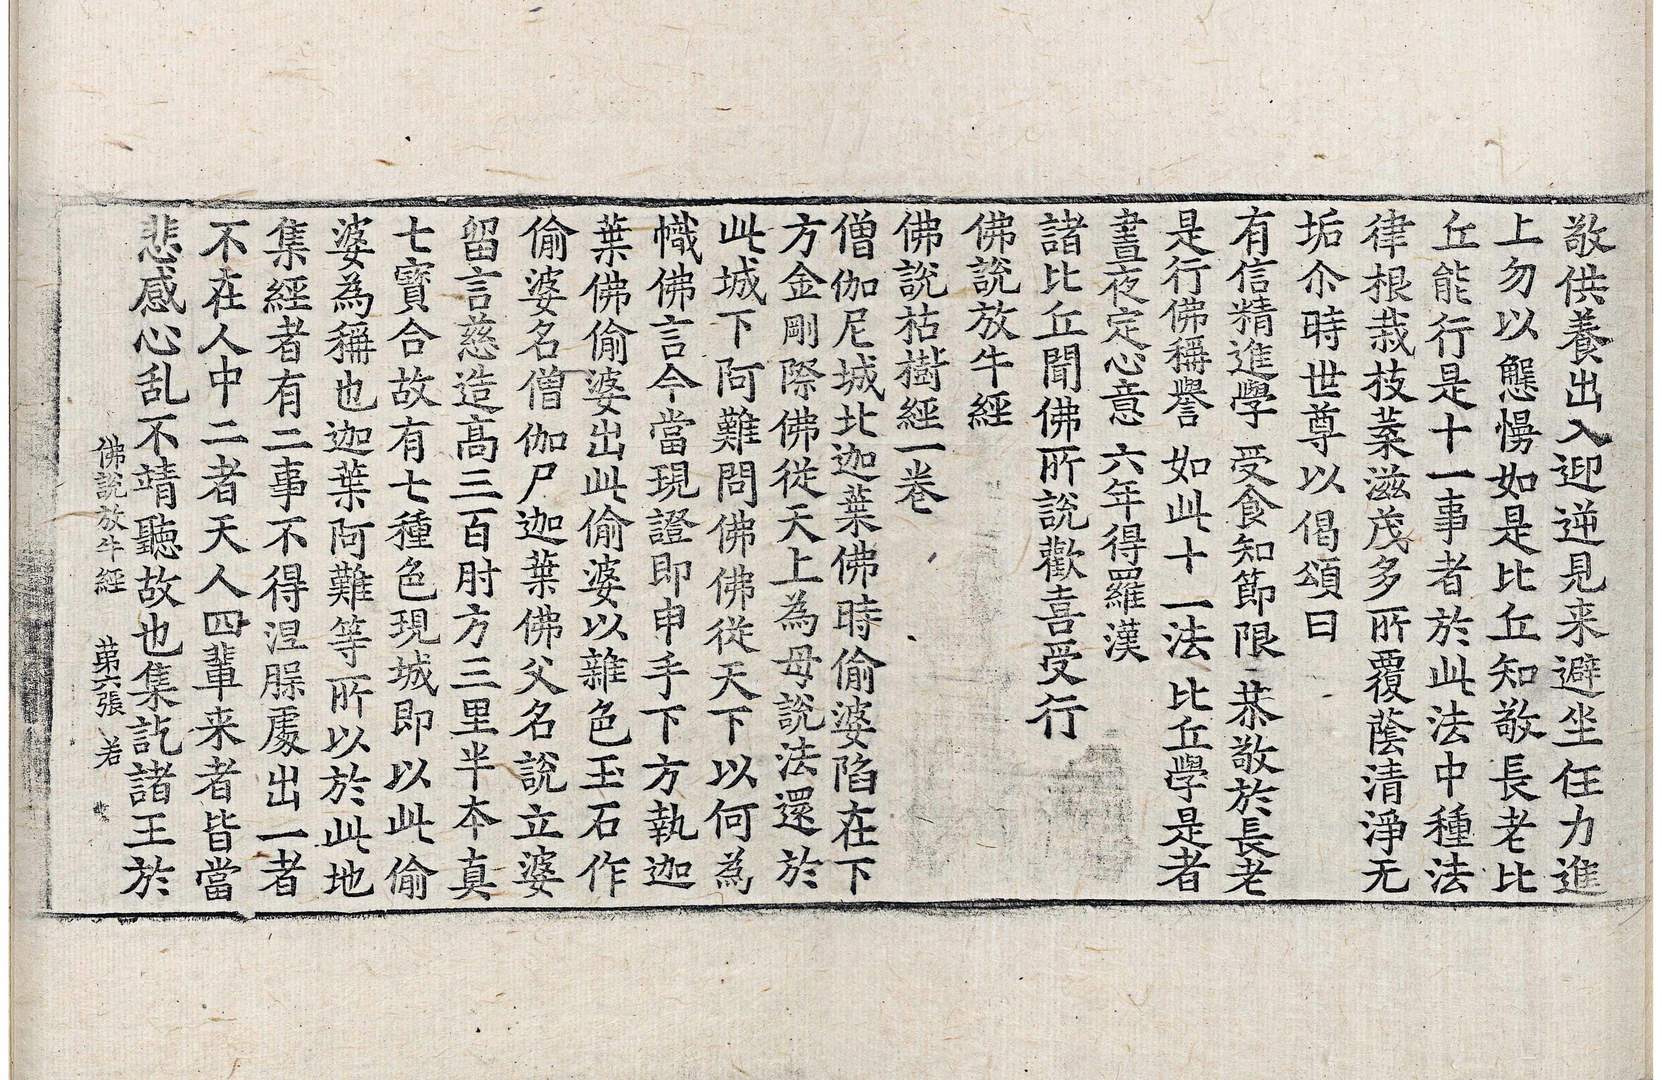 敬供養出入迎逆見来避坐任力進
上勿以態慢如是比丘知敬長老比
丘能行是十一事者於此法中種法
律根栽枝葉滋茂多所覆蔭清淨无
垢尒時世尊以偈頌曰
有信精進學 受食知節限 恭敬於長老
是行佛稱譽 如此十一法 比丘學是者
晝夜定心意 六年得羅漢
諸比丘聞佛所說歡喜受行
佛說放牛經
佛說枯樹經一卷
僧伽尼城北迦葉佛時偷婆陷在下
方金剛際佛從天上為母說法還於
此城下阿難問佛佛從天下以何為
幟佛言今當現證即申手下方執迦
葉佛偷婆出此偷婆以雜色玉石作
偷婆名僧伽尸迦葉佛父名說立婆
留言慈造高三百肘方三里半夲真
七寶合故有七種色現城即以此偷
婆為稱也迦葉阿難等所以於此地
集經者有二事不得涅臊處出一者
不在人中二者天人四輩来者皆當
悲感心乱不靖聽故也集訖諸王於
佛說放牛經 苐六張 若